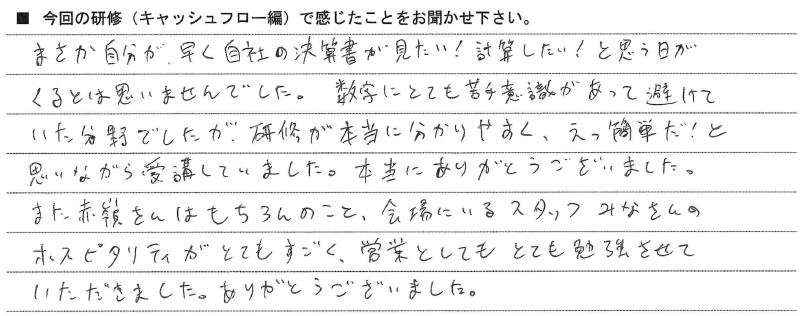 ■ 今回の研修（キャッシュフロー編）で感じたことをお聞かせ下さい。
まさか自分が、早く自社の決算書が見たい！計算したい！と思う日が
くるとは思いませんでした。 数字にとても苦手意識があって避けて
いた分野でしたが、研修が本当に分かりやすく、えっ簡単だ！と
思いながら受講していました。本当にありがとうございました。
また赤嶺さんはもちろんのこと、会場にいるスタッフみなさんの
ホスピタリティがとてもすごく、営業としてもとても勉強させて
いただきました。ありがとうございました。